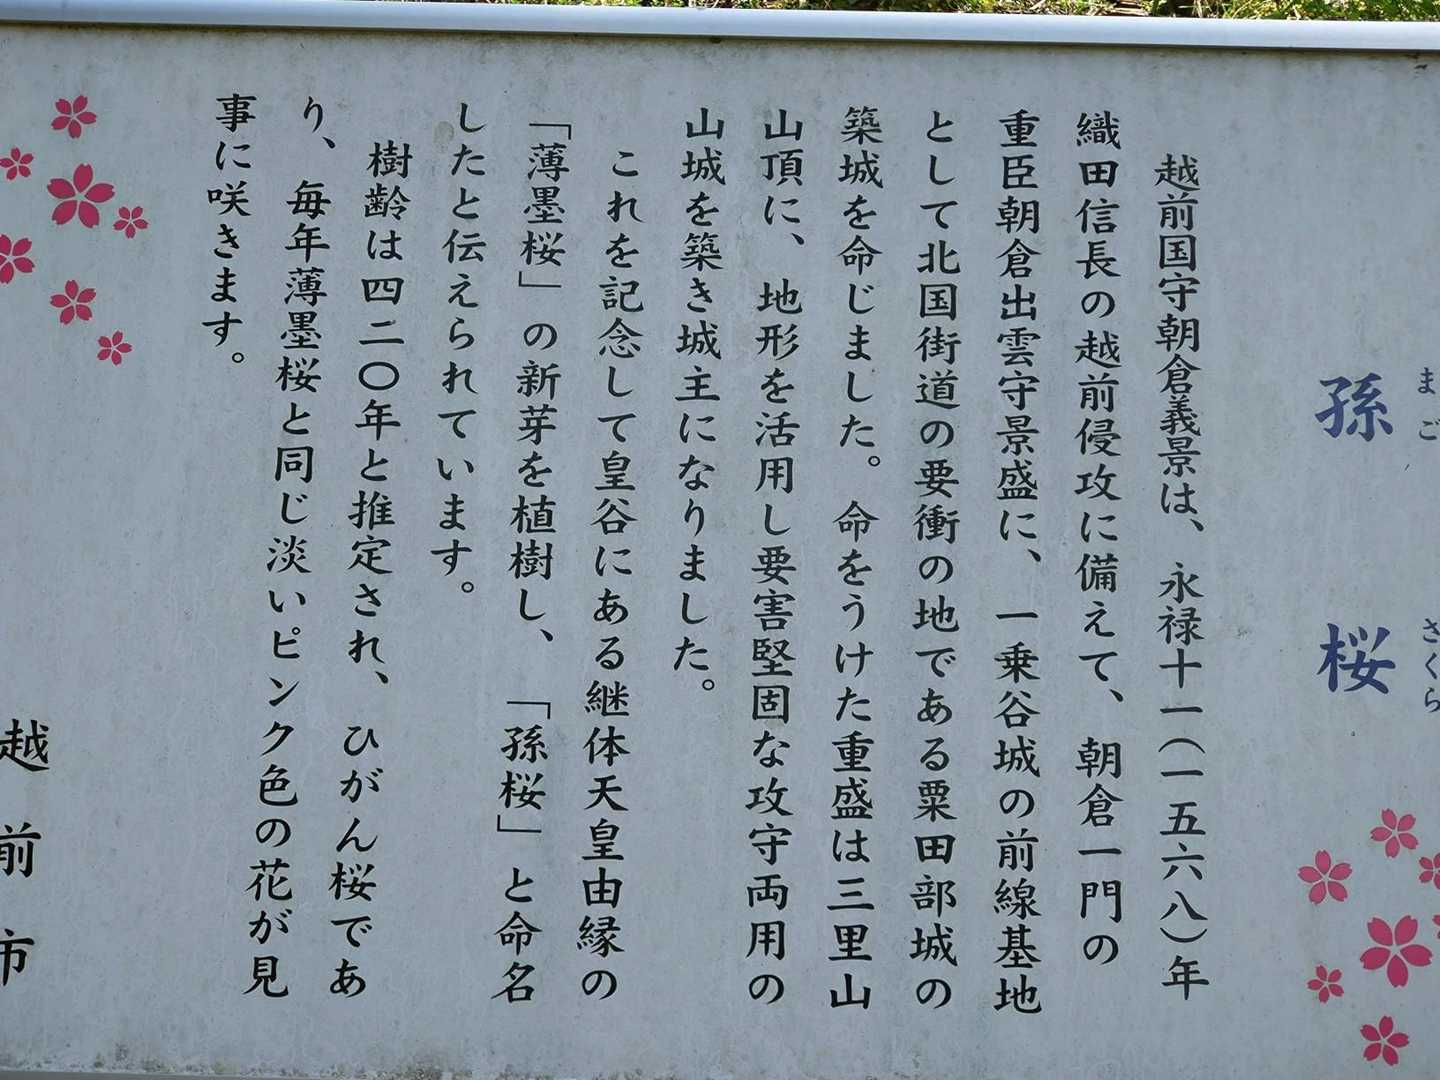 まご
さくら
孫桜
越前国守朝倉義景は、永禄十一(一五六八)年
織田信長の越前侵攻に備えて、朝倉一門の
重臣朝倉出雲守景盛に、一乗谷城の前線基地
として北国街道の要衝の地である粟田部城の
築城を命じました。命をうけた重盛は三里山
山頂に、地形を活用し要害堅固な攻守両用の
山城を築き城主になりました。
これを記念して皇谷にある継体天皇由縁の
「薄墨桜」の新芽を植樹し、「孫桜」と命名
したと伝えられています。
樹齢は四二〇年と推定され、ひがん桜であ
り、毎年薄墨桜と同じ淡いピンク色の花が見
事に咲きます。
越前市